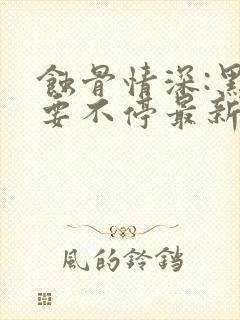 蝕骨情深:黑
要不停最新
風的鈴鐺